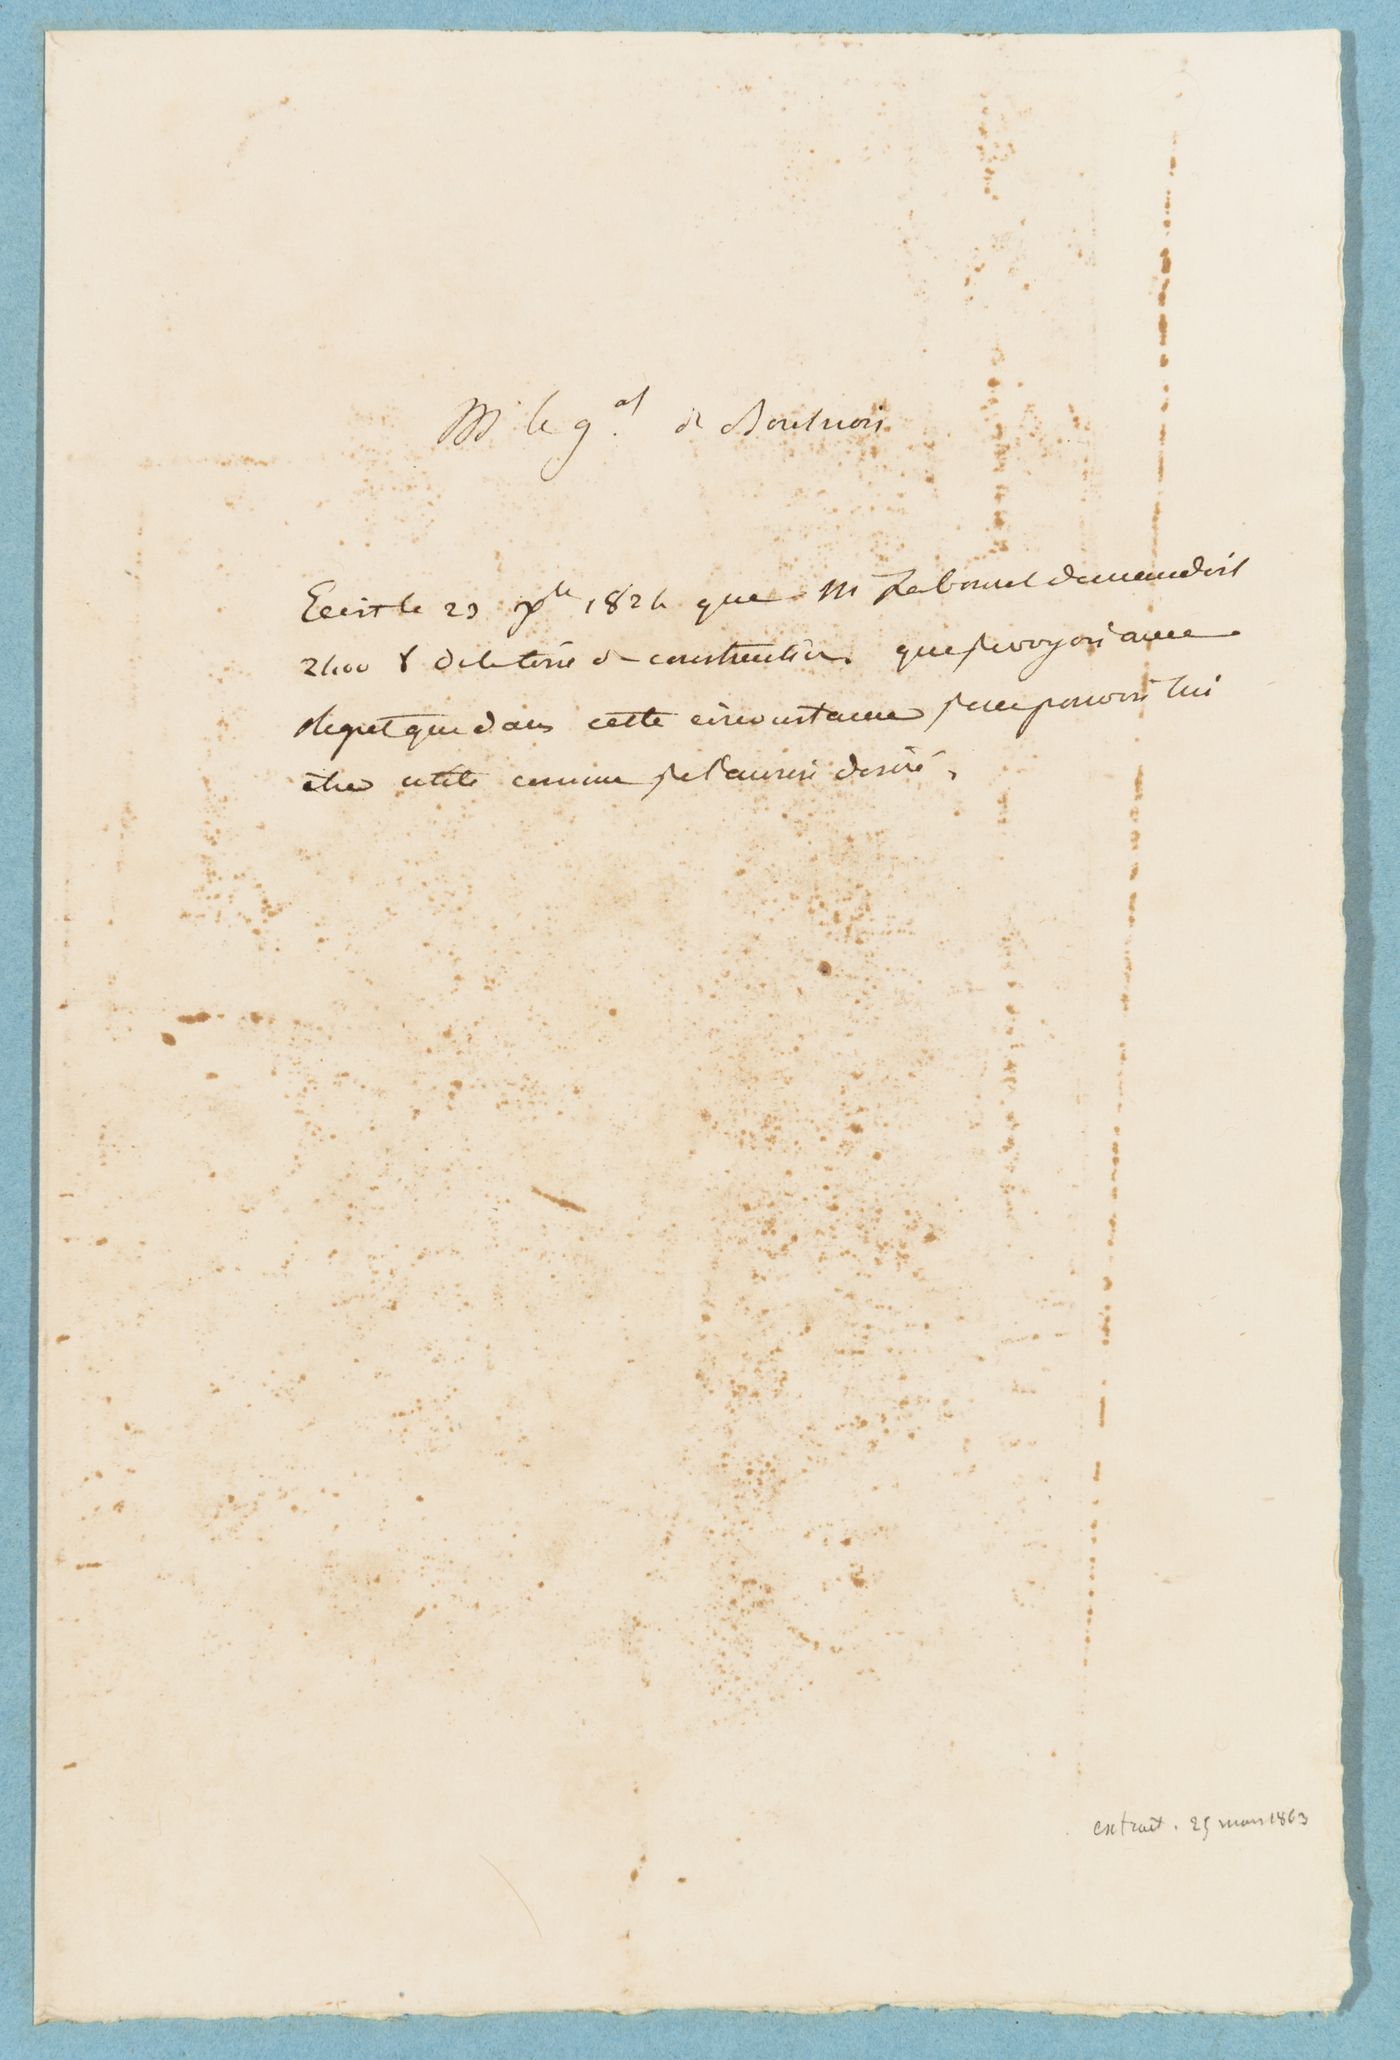 M le g.al de Boulnois
Ecrit le 23 xbre 1824 que M Lebound demandoit
2400 f de la toise de construction. que je voyois avec
regret que dans cette circonstance je ne pouvois lui
être utile comme je l'aurois desiré,
extrait. 25 mars 1863